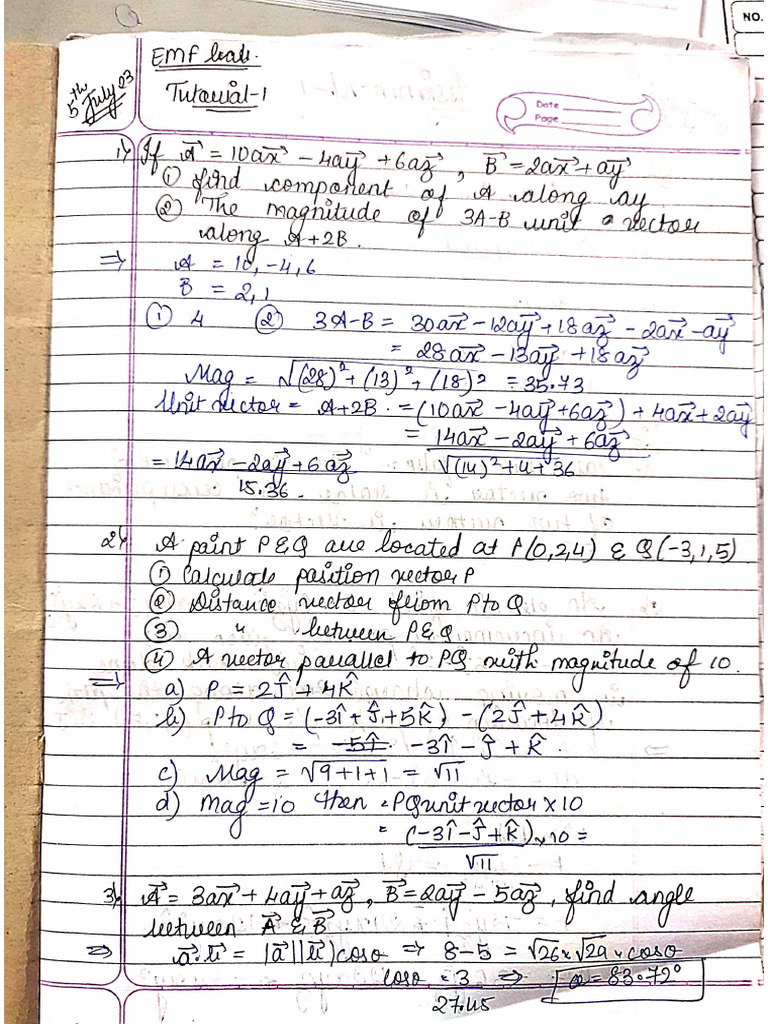 NO.
EMF Grade.
5th July 23
Tutorial-1
Date
Page
1) If A⃗ = 10ax⃗ - 4ay⃗ + 6az⃗ , B⃗ = 2ax⃗ + ay⃗
① find component of A along ay
② The magnitude of 3A-B unit a vector
along A+2B.
⇒ A = 10, -4, 6
B = 2, 1
① 4 ② 3A-B = 30ax⃗ - 12ay⃗ + 18az⃗ - 2ax⃗ - ay⃗
= 28ax⃗ - 13ay⃗ + 18az⃗
Mag = √(28)² + (13)² + (18)² = 35.73
Unit vector = A+2B. = (10ax⃗ - 4ay⃗ + 6az⃗) + 4ax⃗ + 2ay⃗
= 14ax⃗ - 2ay⃗ + 6az⃗
√(14)² + 4 + 36
= 14ax⃗ - 2ay⃗ + 6az⃗
15.36.
2) A point P & Q are located at P(0,2,4) & Q(-3,1,5)
① Calculate position vector P
② Distance vector from P to Q
③ " between P & Q
④ A vector parallel to PQ with magnitude of 10.
⇒ a) P = 2Ĵ + 4K̂
b) P to Q = (-3î + Ĵ + 5K̂) - (2Ĵ + 4K̂)
= -5î -3î - Ĵ + K̂.
c) Mag = √9+1+1 = √11
d) mag = 10 then = PQ unit vector × 10
= (-3î - Ĵ + K̂) × 10 =
√11
3) A⃗ = 3ax⃗ + 4ay⃗ + az⃗ , B⃗ = 2ay⃗ - 5az⃗ , find angle
between A⃗ & B⃗
⇒ a⃗.b⃗ = |a⃗||b⃗|cosθ ⇒ 8-5 = √26 × √29 × cosθ
cosθ = 3 ⇒ θ = 83.72°
27.45